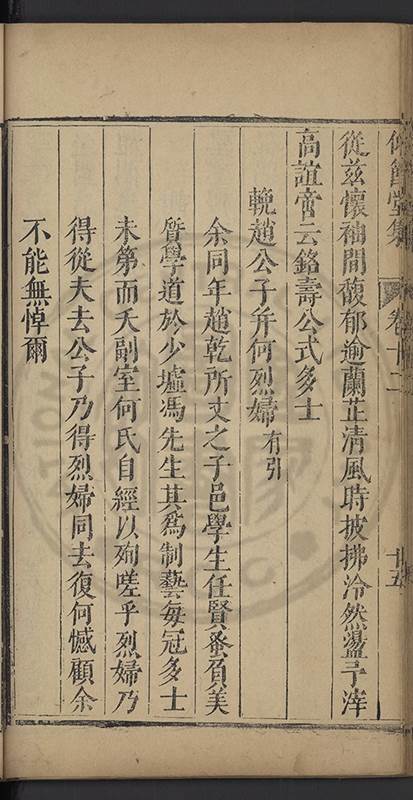 仰節堂集 卷十二 十五
從兹懷袖間馥郁逾蘭芷清風時披拂泠然盪予滓
高誼啻云銘壽公式多士
輓趙公子并何烈婦有引
余同年趙乾所丈之子邑學生任賢蚤負美
質學道於少墟馮先生其為制藝每冠多士
未第而夭副室何氏自經以殉嗟乎烈婦乃
得從夫去公子乃得烈婦同去復何憾顧余
不能無悼爾